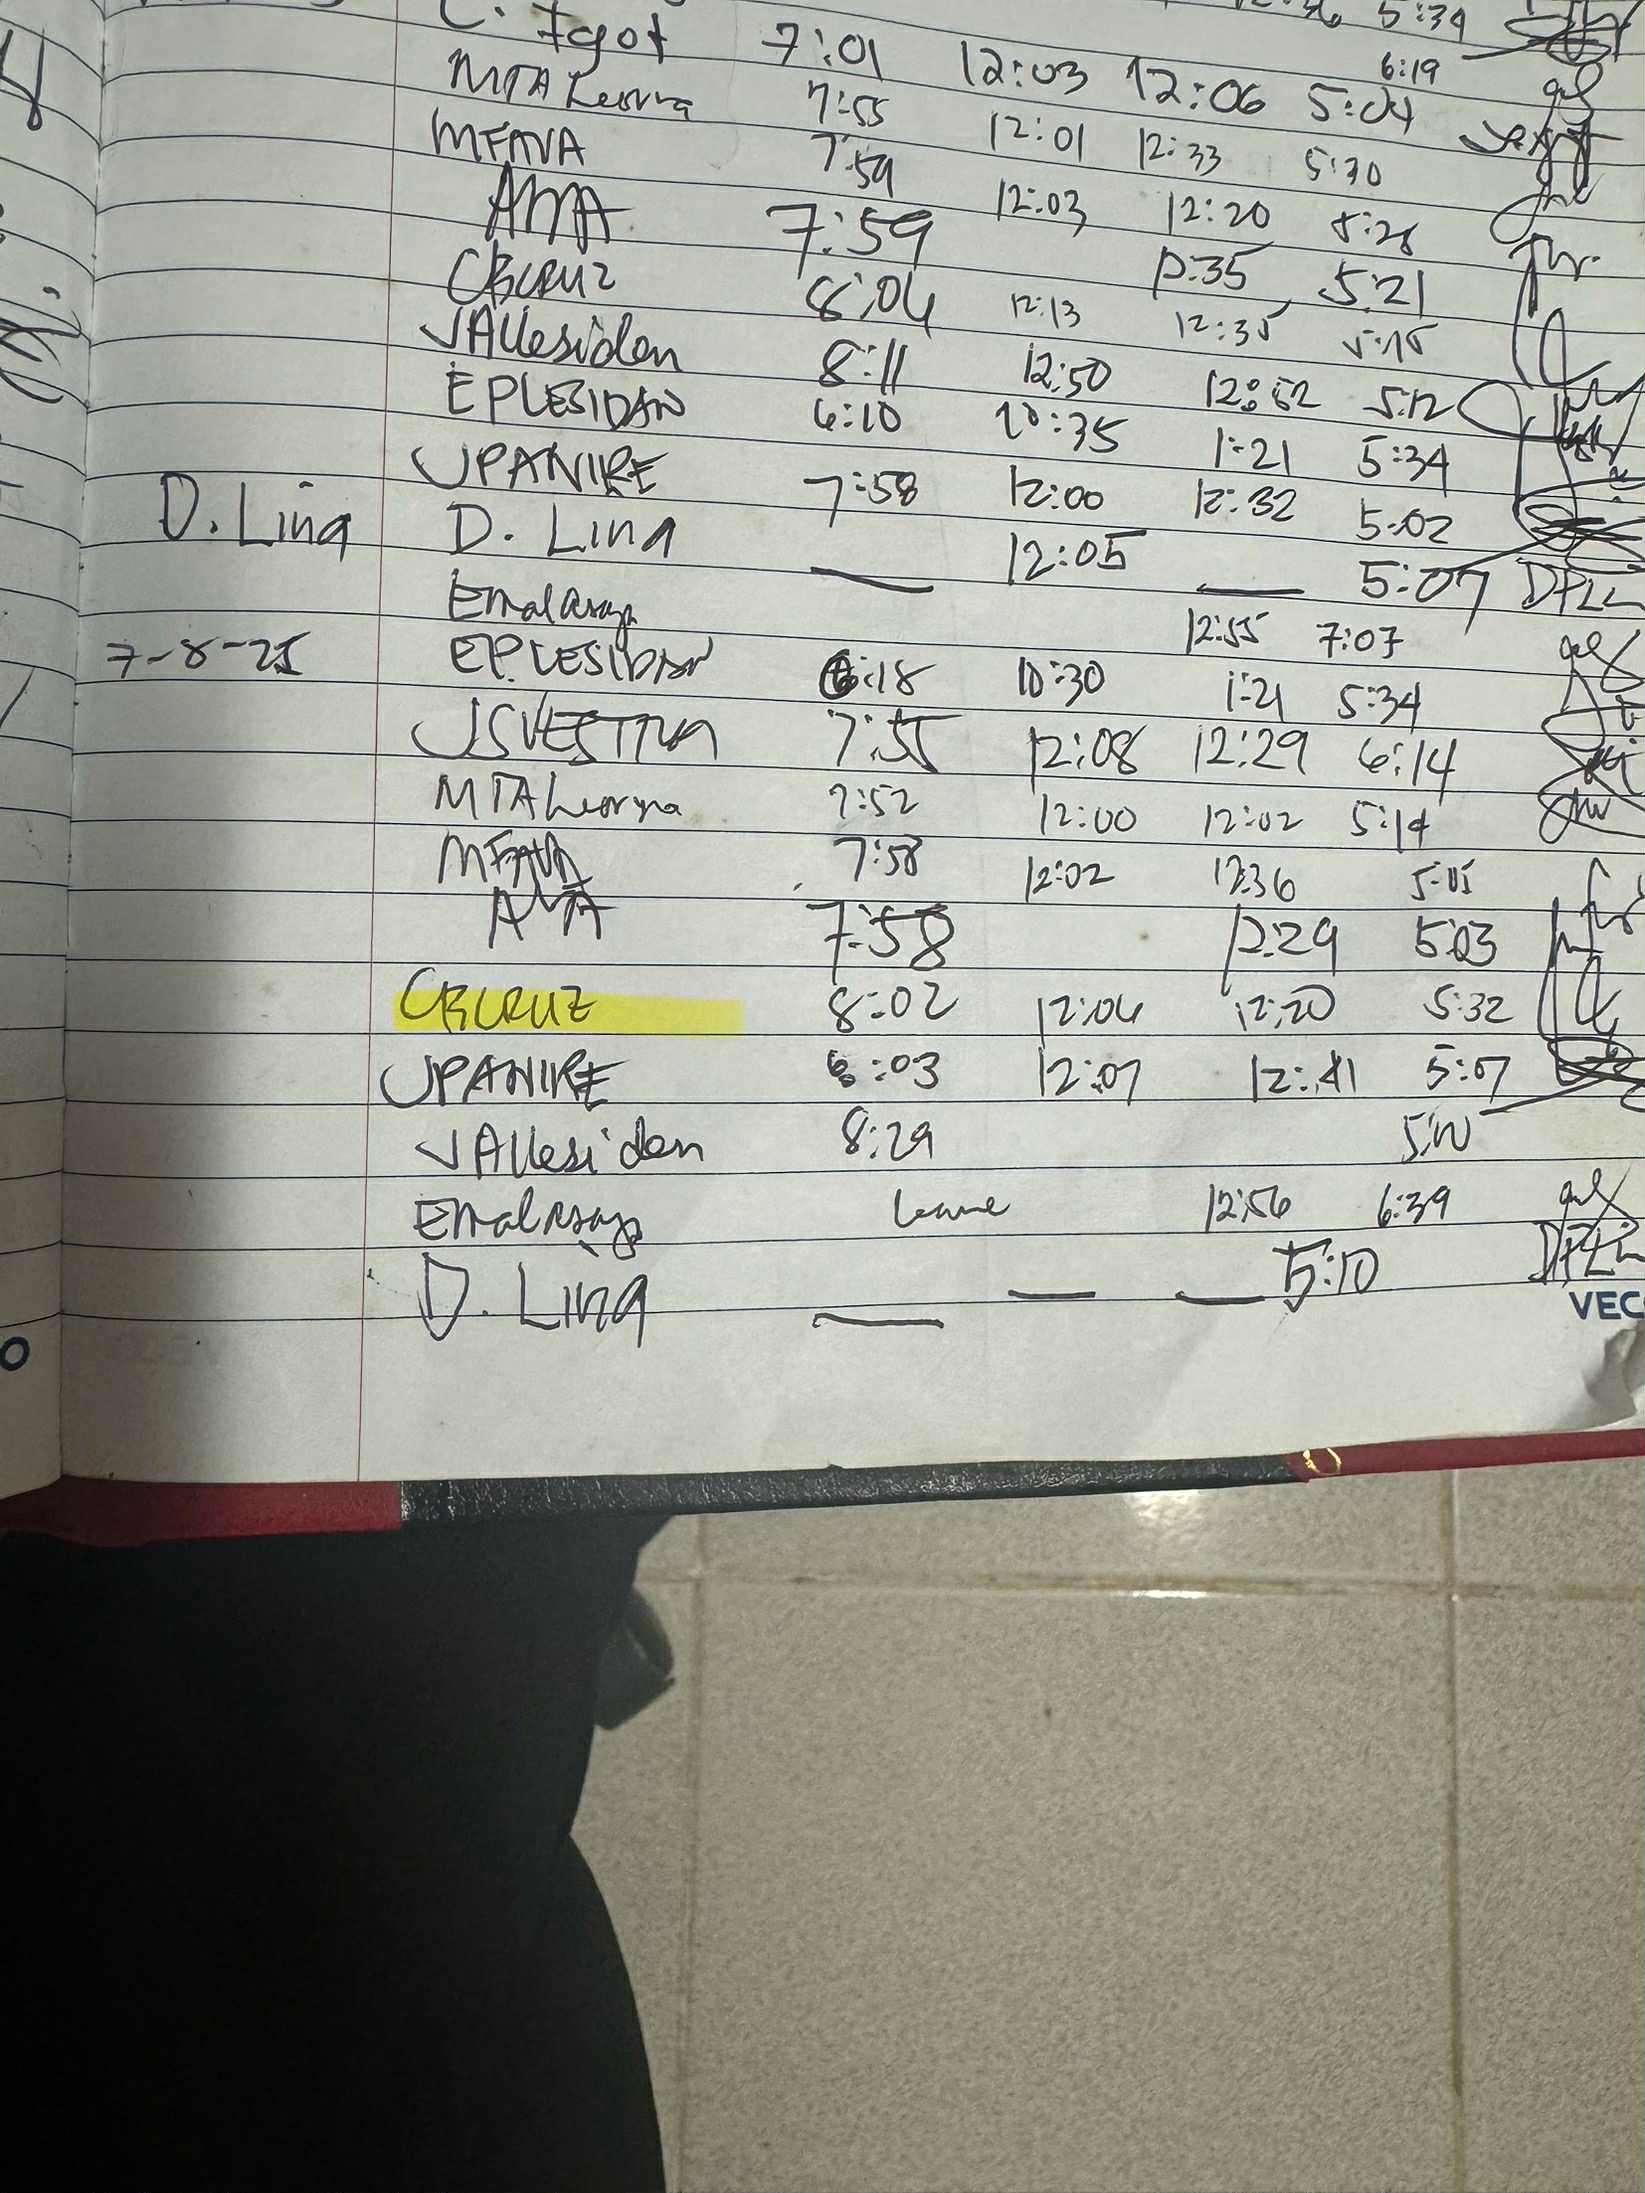 5:34
C. Igot 7:01 12:03 12:06 5:04
6:19
MTALedesma 7:55 12:01 12:33 5:30
MFAVA 7:59 12:03 12:20 5:28
AMA 7:59 12:35 5:21
CBCRUZ 8:04 12:13 12:35 5:15
JAllesiden 8:11 12:50 12:52 5:12
EPLESIDAN 6:10 10:35 1:21 5:34
JPANIRE 7:58 12:00 12:32 5:02
D. Lina D. Lina — 12:05 — 5:07
12:55 7:07
7-8-25 EPLESIDAN 6:18 10:30 1:21 5:34
7:55 12:08 12:29 6:14
7:52 12:00 12:02 5:14
MFAVA 7:58 12:02 12:36 5:05
7:58 12:29 5:03
CBCRUZ 8:02 12:04 12:20 5:32
JPANIRE 8:03 12:07 12:41 5:07
JAllesiden 8:29 5:10
leave 12:56 6:39
D. Lina — — — 5:10
VEC